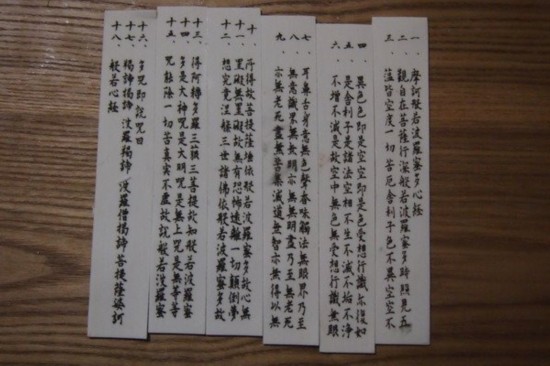 一、摩訶般若波羅蜜多心経
二、觀自在菩薩行深般若波羅蜜多時照見五
三、蘊皆空度一切苦厄舍利子色不異空空不
四、異色色即是空空即是色受想行識亦復如
五、是舍利子是諸法空相不生不滅不垢不浄
六、不增不減是故空中無色無受想行識無眼
七、耳鼻舌身意無色聲香味觸法無眼界乃至
八、無意識界無無明亦無無明盡乃至無老死
九、亦無老死盡無苦集滅道無智亦無得以無
十、所得故菩提薩埵依般若波羅蜜多故心無
十一、罣礙無罣礙故無有恐怖遠離一切顛倒夢
十二、想究竟涅槃三世諸佛依般若波羅蜜多故
十三、得阿耨多羅三藐三菩提故知般若波羅蜜
十四、多是大神呪是大明呪是無上呪是無等等
十五、呪能除一切苦真實不虚故説般若波羅蜜
十六、多呪即説呪曰
十七、揭諦揭諦 波羅揭諦 波羅僧揭諦 菩提薩婆訶
十八、般若心経